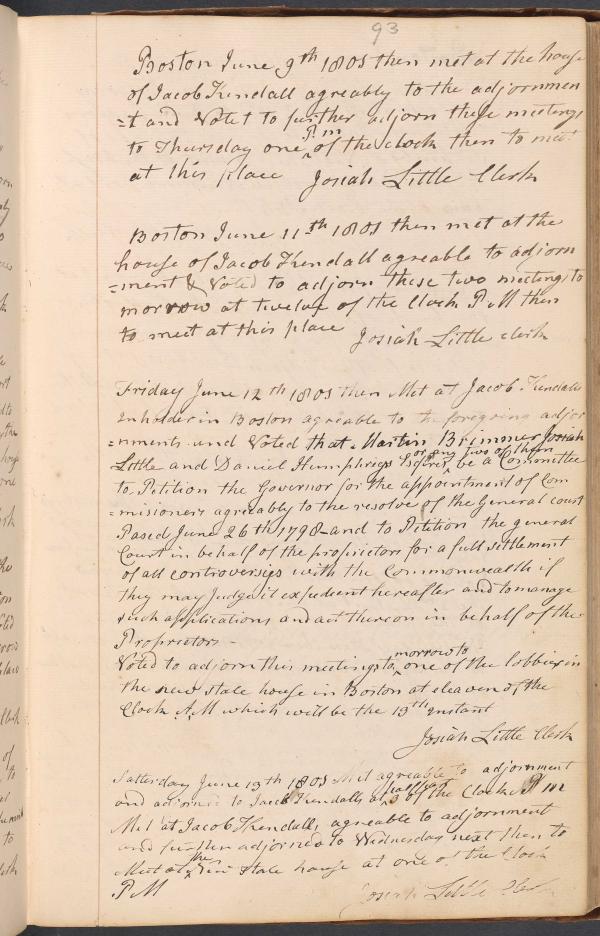 93
Boston June 9th 1801 then met at the house
of Jacob Kendall agreably to the adjornmen
=t and Votet to further adjorn these meetings
to Thursday one P.m of the clock then to meet
at this place Josiah Little Clerk
Boston June 11th 1801 then met at the
house of Jacob Kendall agreable to adjorn
=ment & Voted to adjorn these two meetings to
morrow at twelve of the Clock P M then
to meet at this place Josiah Little clerk
Friday June 12th 1801 then Met at Jacob Kendalls
Inholder in Boston agreable to the foregoing adjor
=nments and Voted that Martin Brimmer Josiah
Little and Daniel Humphries Esqrs or any two of them be a Committee
to Petition the Governor for the appointment of Com
=misioners agreably to the resolve of the General court
Pased June 26th 1798 and to Petition the general
Court in behalf of the proprietors for a full settlement
of all controversies with the Commonwealth if
they may Judge it expedient hereafter and to manage
such applications and act thereon in behalf of the
Proprietors -
Voted to adjorn this meetings to morrow to one of the lobbies in
the new state house in Boston at eleaven of the
Clock A.M which will be the 13th Instant
Josiah Little Clerk
Satterday June 13th 1801 Met agreable to adjornment
and adjorned to Jacob Kendalls at half past 3 of the Clock P m
Met at Jacob Kendalls agreable to adjornment
and further adjorned to Wednesday next then to
Meet at the New State house at one of the Clock
P M Josiah Little Clerk